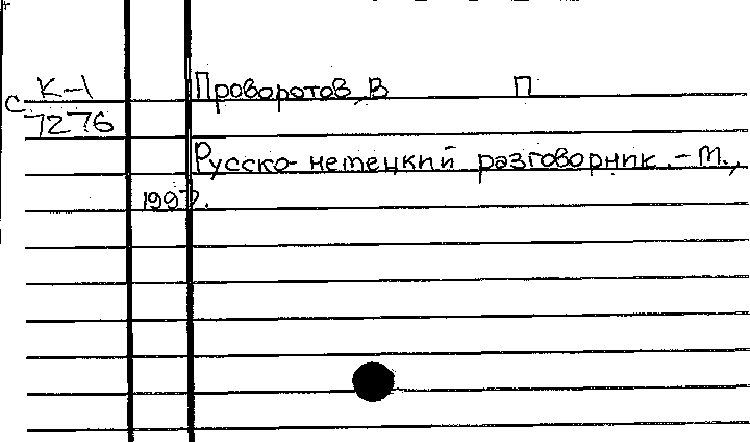 К-1 Проворотов, В П
С
7276
Русско-немецкий разговорник.-М.,
1997.